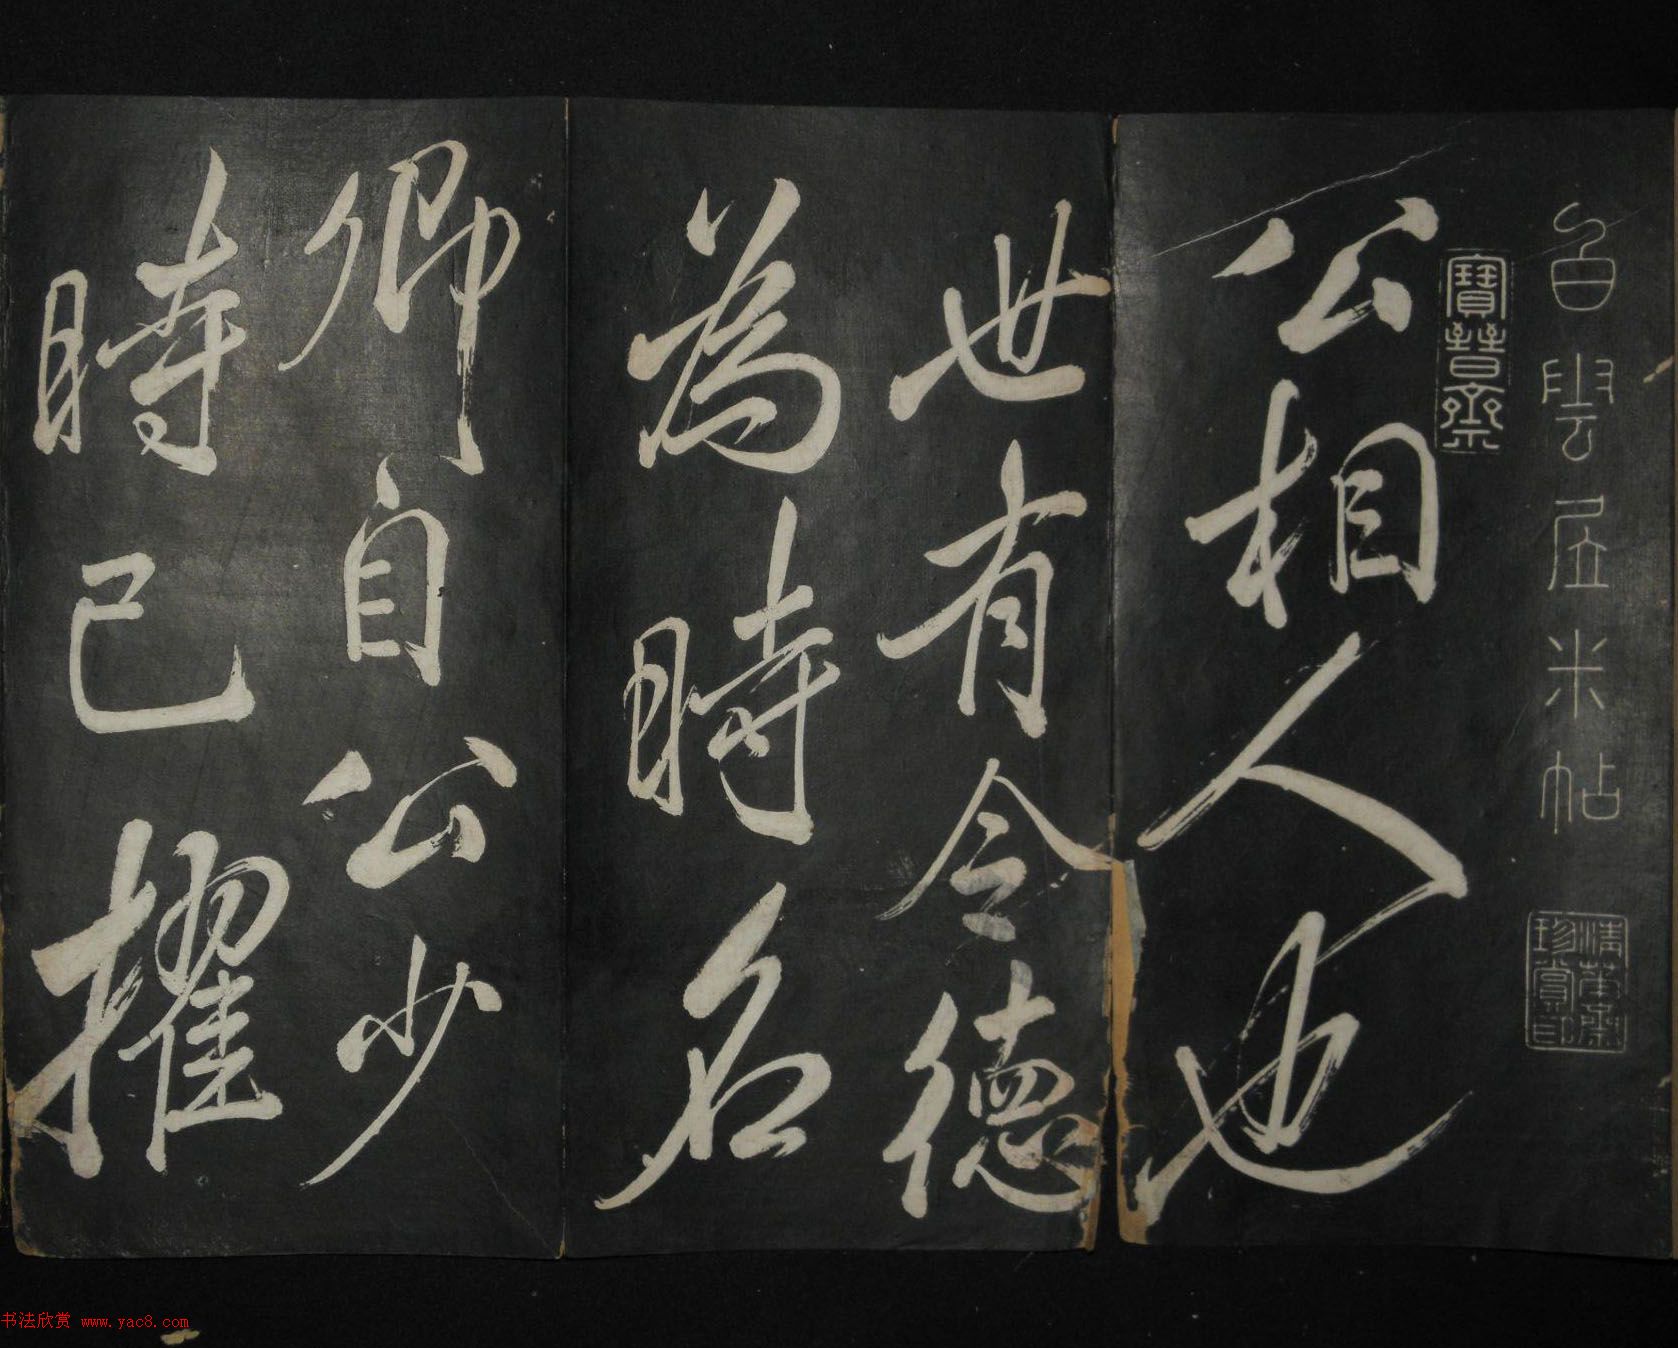 白雲居米帖
寶晉齋
公相人也
世有令德
為時名
卿自公少
時已擢
書法欣賞 www.yac8.com